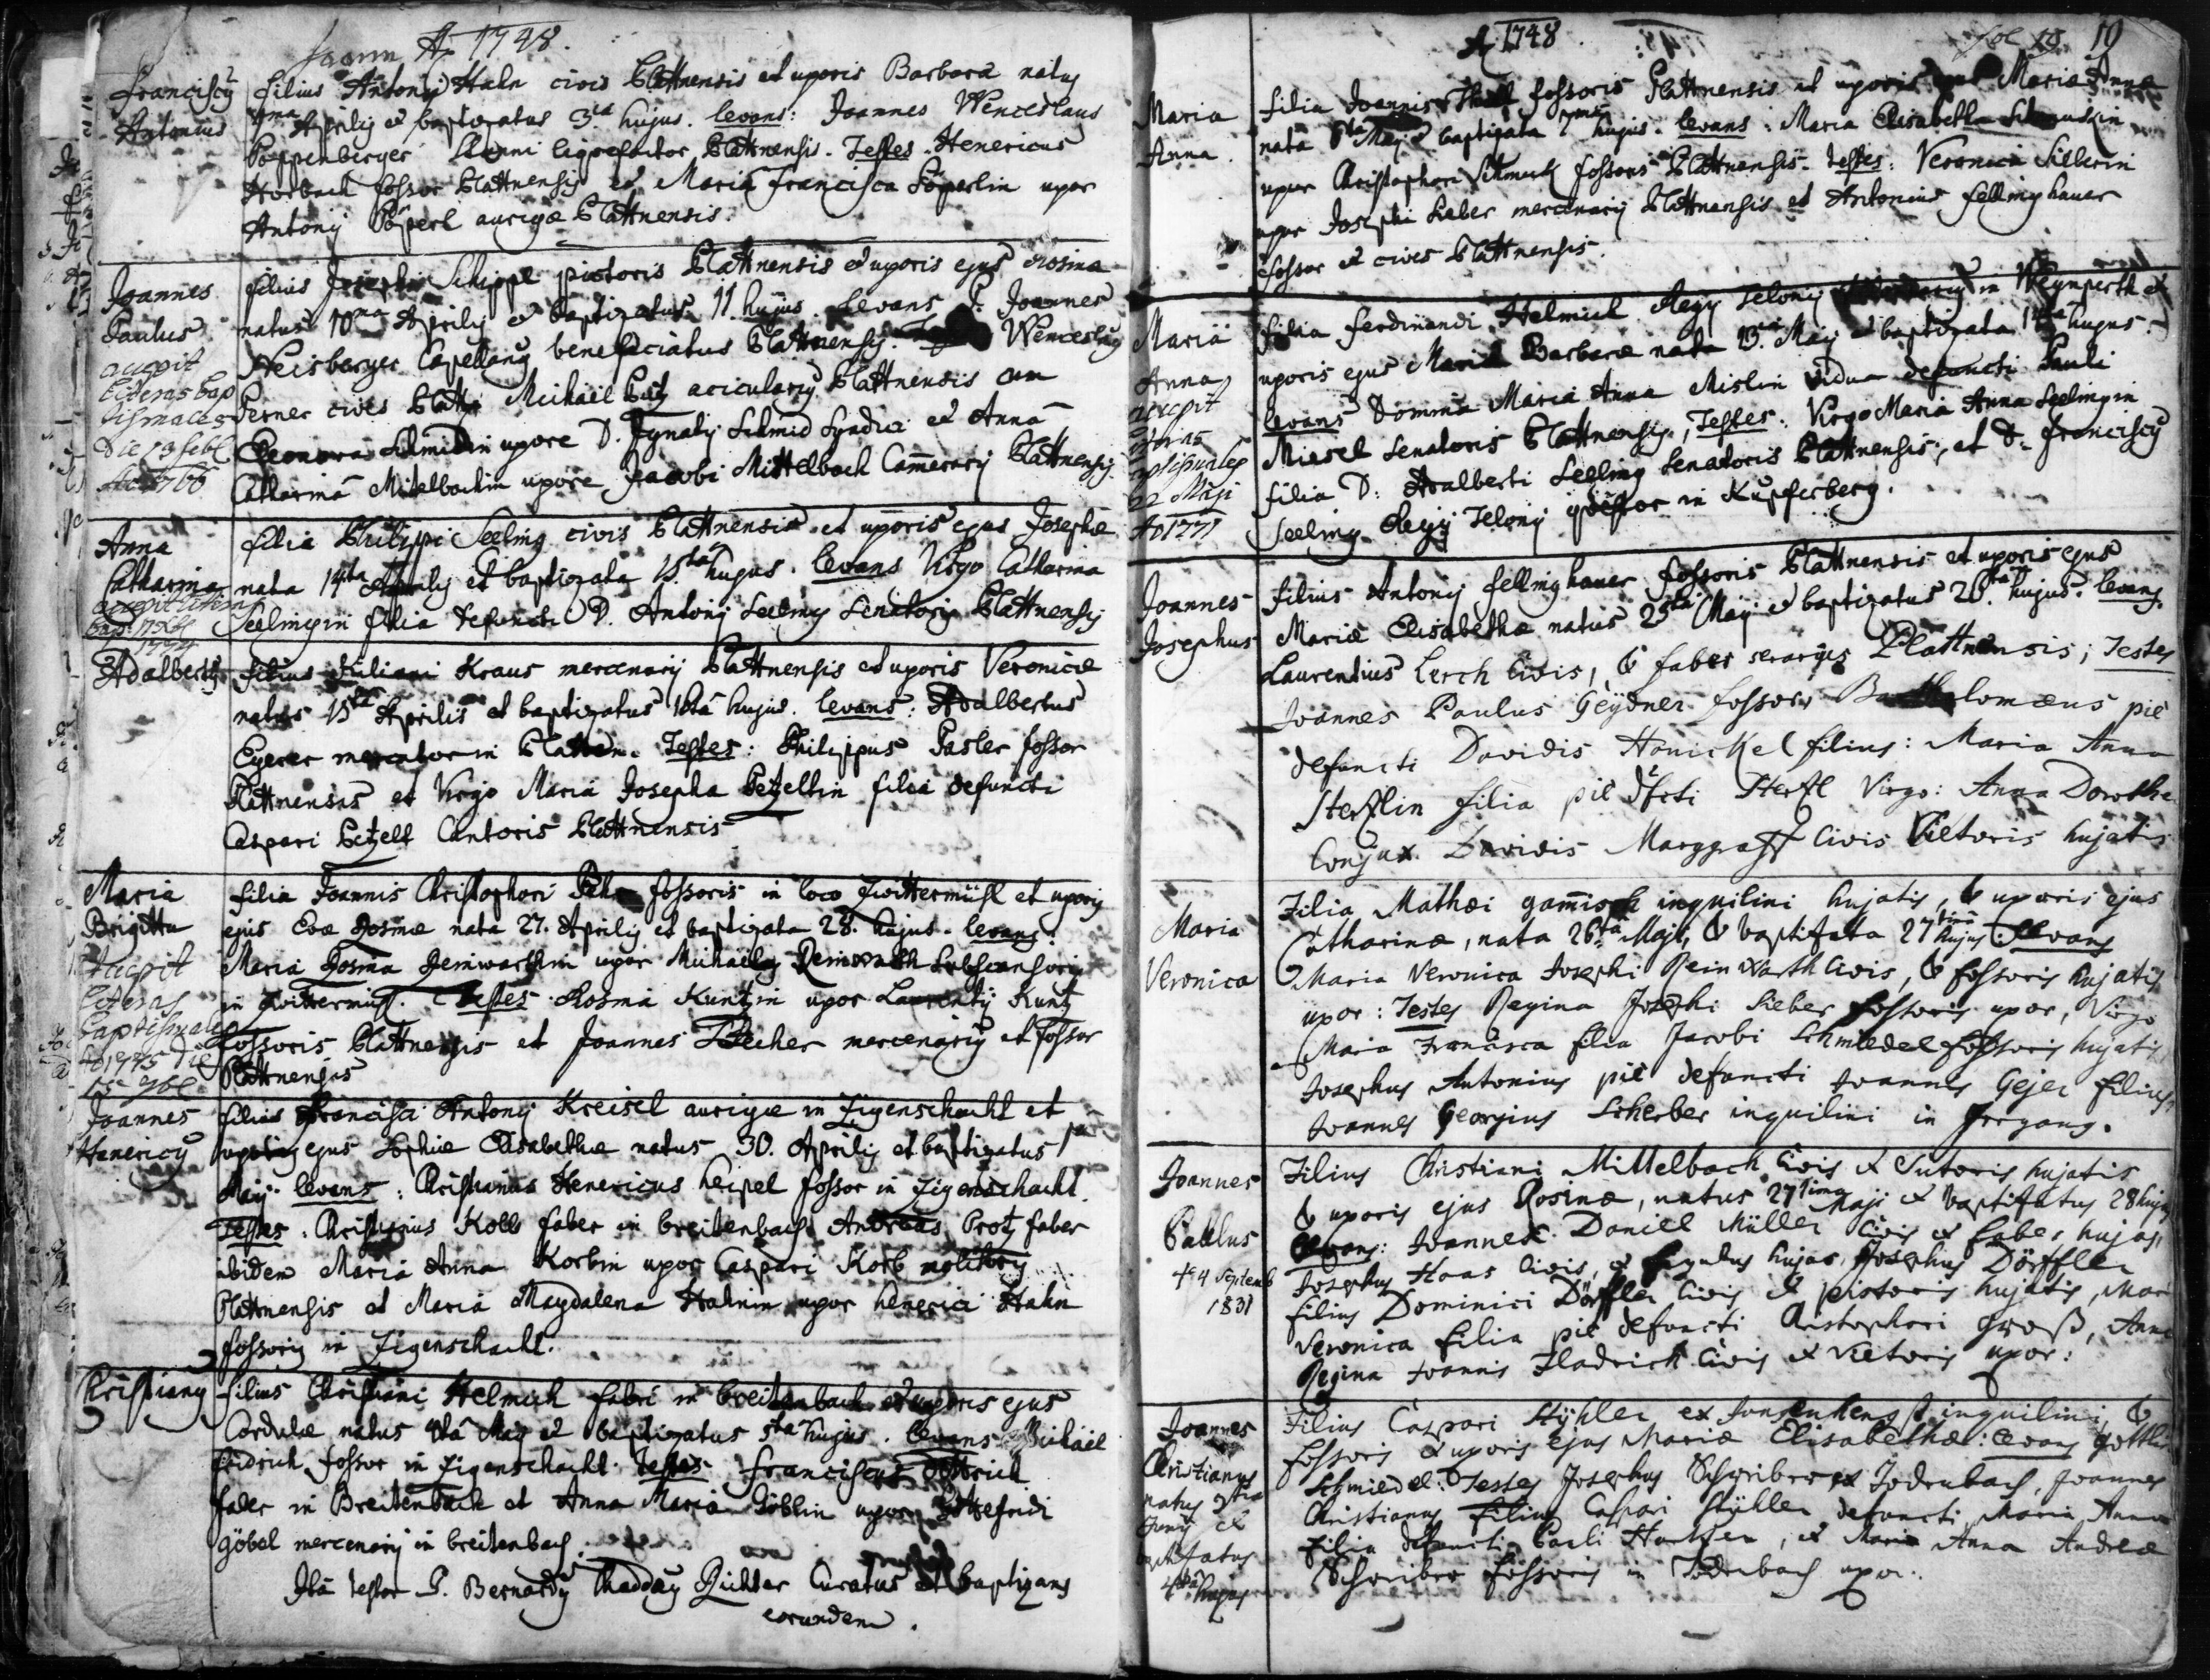 Ao 1748.
Franciscy
Antonius
filius Antonij Hahn civis Plattnensis et uxoris Barbara natus
Aprilis et baptizatus 3tia hujus. levans: Joannes Wenceslaus
Poppenberger Stanni ligefactor Plattnensis. Testes. Henericus
Horbach fossor Plattnensis et Maria Francisca Pöperlin uxor
Antonij Pöperl aurigæ Plattnensis.
Joannes
Paulus
accepit
literas bap
tismales
die 13 febl
Ao 1766
filius Josephi Schippl pictoris Plattnensis et uxoris ejus Rosina
natus 10ma Aprilis et baptizatus 11. hujus. Levans P. Joannes
Heisberger Capellanus beneficiatus Plattnensis. Wenceslaus
Perner cives Plattn. Michael Putz acicularis Plattnensis cum
Eleonora Schmidin uxore D. Ignatij Schmid Syndici et Anna
Catharina Mittelbachin uxore Jacobi Mittelbach Camerarij Plattnensis
Anna
Catharina
accepit literas
bap.
1774
filia Philippi Seeling civis Plattnensis et uxoris ejus Josephæ
nata 14ta Aprilis et baptizata 15ta hujus. levans Virgo Catharina
Seelingin filia defuncti D. Antonij Seeling Senatoris Plattnensis
Adalbertus
filius Juliani Kraus mercenarij Plattnensis et uxoris Veronicæ
natus 15ta Aprilis et baptizatus 16ta hujus. levans: Adalbertus
Eyerer mercator in Platten. Testes: Philippus Pasler fossor
Plattnensis et Virgo Maria Josepha Petzeltin filia defuncti
Caspari Petzelt Cantoris Plattnensis
Maria
Brigitta
Accepit
literas
baptismales
Ao 1775 die
filia Joannis Christophori fossoris in loco Zwittermühl et uxoris
ejus Evæ Rosinæ nata 27. Aprilis et baptizata 28. hujus. levans:
Maria Rosina Reinwarthin uxor Michaelis Reinwarth
in Zwittermühl. Testes Rosina Kuntzin uxor Laurentij Kuntz
fossoris Plattnensis et Joannes mercenarius et fossor
Plattnensis
Joannes
Henericy
filius Francisci Antonij Kreisel aurigæ in Zigenschacht et
uxoris ejus Sophiæ Elisabethæ natus 30. Aprilis et baptizatus 1ma
Maij. levans: Christianus Henericus heipel fossor in Zigenschacht.
Testes: Christianus Kolb faber in breitenbach Andreas Protz faber
ibidem Maria Anna Korbin uxor Caspari Korb molitoris
Plattnensis et Maria Magdalena Hahnin uxor henerici Hahn
fossoris in Zigenschacht.
Christianus
filius Christiani Helmich fabri in breitenbach et uxoris ejus
Cordulæ natus 4ta Maij et baptizatus 5ta hujus. levans Michael
fridrich fossor in Zigenschacht testes Franciscus
faber in Breitenbach et Anna Maria Göblin uxor Gottefridi
göbel mercenarij in breitenbach.
Ita testor P. Bernardus Thaddæus Richter Curatus et baptizans
eorundem.
A 1748
fol 10 10
Maria
Anna.
filia Joannis fossoris Plattnensis et uxoris ejus Mariæ Annæ
nata 6ta Maij baptizata 7ma hujus. levans: Maria Elisabetha
uxor Christophori Schmuck fossoris Plattnensis. testes: Veronica Sieberin
uxor Josephi Sieber mercenarij Plattnensis et Antonius fellinghauer
fossor et cives Plattnensis.
Maria
Anna
accepit
literas
baptismales
22 Maji
Ao 1771
filia ferdinandi Helmich Regij Telonij in Weipperth et
uxoris ejus Mariæ Barbaræ nata 13. Maij et baptizata 14ta hujus.
levans Domina Maria Anna Mislin vidua defuncti Pauli
Miesel Senatoris Plattnensis, Testes: Virgo Maria Anna Seelingin
filia D: Adalberti Seeling Senatoris Plattnensis, et D. Franciscus
Seeling Regij Telonij quæstor in Kupferberg.
Joannes
Josephus
filius Antonij fellinghauer fossoris Plattnensis et uxoris ejus
Mariæ Elisabethæ natus 25ta Maij et baptizatus 26ta hujus. levans
Laurentius Lerch Civis, & faber serarius Plattnensis; Testes
Joannes Paulus Geydner fossor Bartholomæus pie
defuncti Davidis Hönickel filius: Maria Anna
Stertzlin filia pie dfcti Stertzl Virgo: Anna Dorothea
Conjux Davidis Marggraff Civis Vietoris hujatis
Maria
Veronica
Filia Mathæi gamisch inquilini hujatis, & uxoris ejus
Catharinæ, nata 26ta Maji, & baptizata 27tima hujus: Levans
Maria Veronica Josephi Reinwarth Civis, & fossoris hujatis
uxor: Testes Regina Josephi Sieber fossoris uxor, Virgo
Maria Francisca filia Jacobi Schmiedel fossoris hujatis
Josephus Antonius pie defuncti Joannis Gejer filius
Joannes Georgius Scherber inquilini in Irrgang.
Joannes
Paulus
4 Septemb
1831
Filius Christiani Mittelbach Civis & Sutoris hujatis
& uxoris ejus Rosinæ, natus 27tima Maji & baptizatus 28 hujus
Levans: Joannes Daniel Müller Civis & faber hujas,
Josephus Haas Civis, & figulus hujas, Josephus Dörffler
filius Dominici Dörffler Civis & pistoris hujatis, Maria
Veronica filia pie defuncti Christophori Groß, Anna
Regina Joannis Hadrich Civis & Vietoris uxor:
Joannes
Christianus
natus 3tia
Junij et
baptizatus
4ta hujus
Filius Caspari Stühler ex Jungenhengst inquilini, &
fossoris & uxoris ejus Mariæ Elisabethæ: Levans gottlieb
Schmiedel: Testes Josephus Schreiber ex Joderbach, Joannes
Christianus filius Caspari Stühler defuncti Maria Anna
filia defuncti Pauli, & Maria Anna Andreæ
Schreiber fossoris in Joderbach uxor.